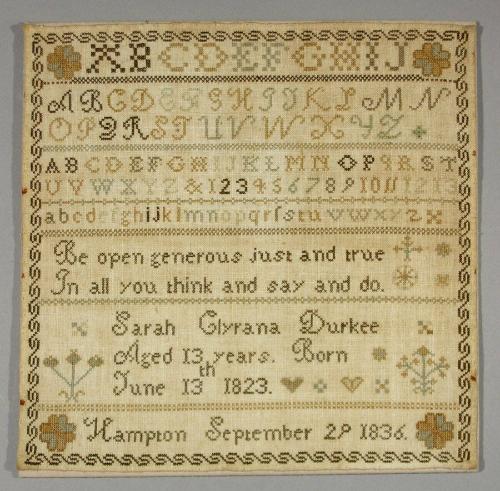 A B C D E F G H I J
A B C D E F G H I J K L M N
O P Q R S T U V W X Y Z
A B C D E F G H I J K L M N O P Q R S T
U V W X Y Z & 1 2 3 4 5 6 7 8 9 10 11 12 13
a b c d e f g h i j k l m n o p q r ſ s t u v w x y z
Be open generous just and true
In all you think and say and do.
Sarah Clyrana Durkee
Aged 13 years. Born
June 13th 1823.
Hampton September 29 1836.